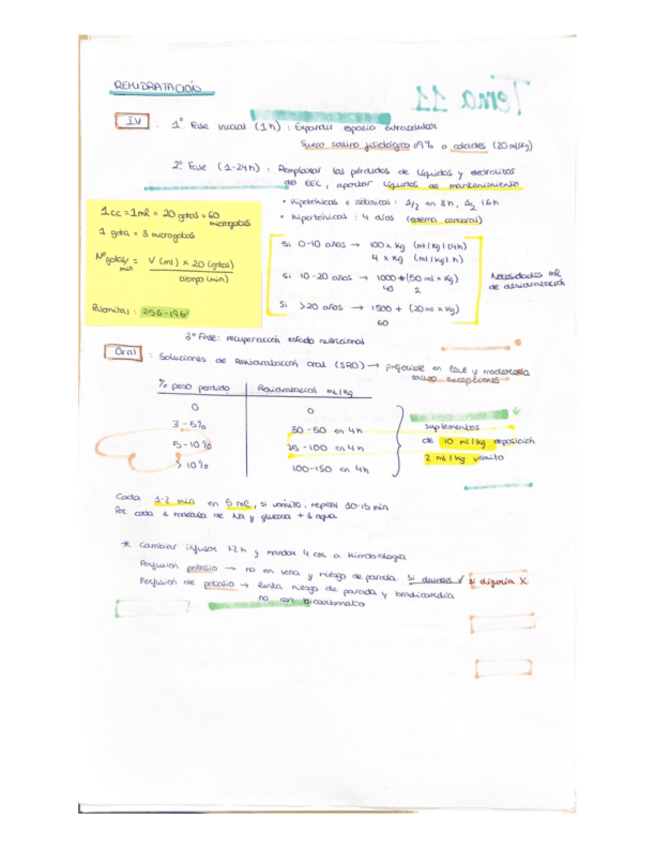 REHIDRATACIÓN
Tema 11
I.V : 1º Fase inicial (1 h) : Expandir espacio extracelular
Suero salino fisiológico 0'9% o coloides (20 ml/kg)
2º Fase (1-24h) : Remplazar las pérdidas de líquidos y electrolitos
del EEC, aportar líquidos de mantenimiento
• Hipotónicas e isotónicas : 1/2 en 8h, 1/2 16h
• Hipertónicas : 4 días (edema cerebral)
1 cc = 1 ml = 20 gotas = 60
microgotas
1 gota = 3 microgotas
Nº gotas/min = V (ml) x 20 (gotas)
tiempo (min)
Palomitas :
Si 0-10 años → 100 x kg (ml/kg/24h)
4 x kg (ml/kg/h)
Si 10-20 años → 1000 + (50 ml x kg)
40 2
Si >20 años → 1500 + (20 ml x kg)
60
Necesidades ml
de
3º Fase: recuperación estado nutricional
Oral : Soluciones de Rehidratación oral (SRO) → preferible en leve y moderada
salvo excepciones
% peso perdido Rehidratación mL/kg
0 0
3-5% 30-50 en 4h
5-10% 75-100 en 4h
>10% 100-150 en 4h
suplementos
de 10 ml/kg deposición
2 ml/kg vómito
Cada 1-2 min en 5 ml, si vómito, repetir 10-15 min
Por cada 1 molécula de Na y glucosa + 1 agua
* Cambiar infusor 72h y mandar 4 cm a Microbiología
Perfusión potasio → no en vena y riesgo de parada. Si diuresis √ si oliguria X
Perfusión de potasio → lenta riesgo de parada y bradicardia
no con bicarbonato